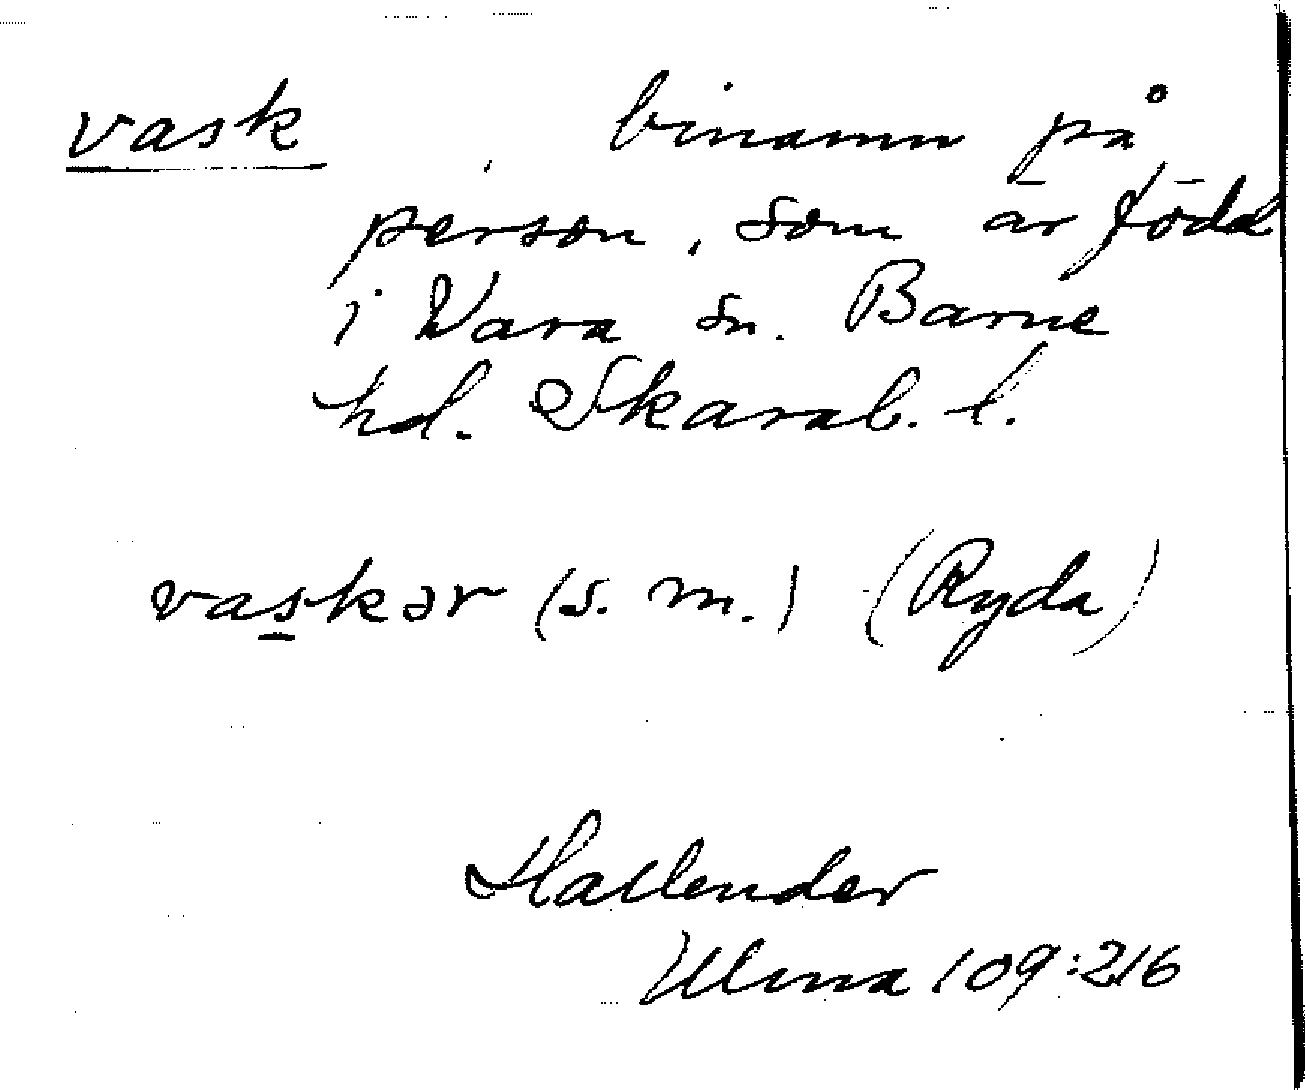 vask, binamn på
person, som är född
i Wara sn. Barne
hd. Skarab. l.
vaskər (s. m.) (Ryda)
Hallender
Ulma 109:216